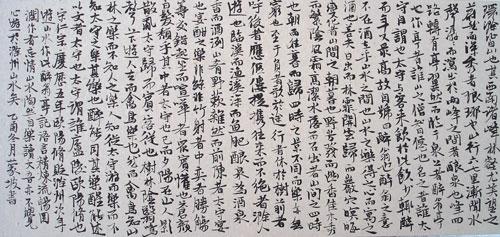 環滁皆山也其西南諸峰林壑尤美望之
蔚然而深秀者琅琊也山行六七里漸聞水
聲潺潺而瀉出於兩峰之間者釀泉也峰回
路轉有亭翼然臨於泉上者醉翁亭
也作亭者誰山之僧智僊也名之者誰太
守自謂也太守與客來飲於此飲少輒醉
而年又最高故自號曰醉翁也醉翁之意
不在酒在乎山水之間也山水之樂得之心而寓之
酒也若夫日出而林霏開雲歸而巖穴暝晦
明變化者山間之朝暮也野芳發而幽香佳木秀
而繁陰風霜高潔水落而石出者山間之四時
也朝而往暮而歸四時之景不同而樂亦無
窮也至于負者歌於途行者休於樹前者
呼後者應傴僂提攜往來而不絕者滁人
遊也臨溪而漁溪深而魚肥釀泉為酒泉
香而酒洌山肴野蔌雜然而前陳者太守宴
也宴酣之樂非絲非竹射者中弈者勝觥
籌交錯起坐而喧嘩者眾賓懽也蒼顏
白髮頹乎其中者太守醉也已而夕陽在山人影
散亂太守歸而賓客從也樹林陰翳鳴聲
上下遊人去而禽鳥樂也然而禽鳥知山
林之樂而不知人之樂人知從太守遊而樂而不
知太守之樂其樂也醉能同其樂醒能述
以文者太守也太守謂誰廬陵歐陽修也
宋仁宗慶曆五年歐陽修貶滁州次年
遊山作此醉翁亭記語言精煉流
作者寄情山水與民同樂讀
心遊于滁州山水矣乙酉四月書